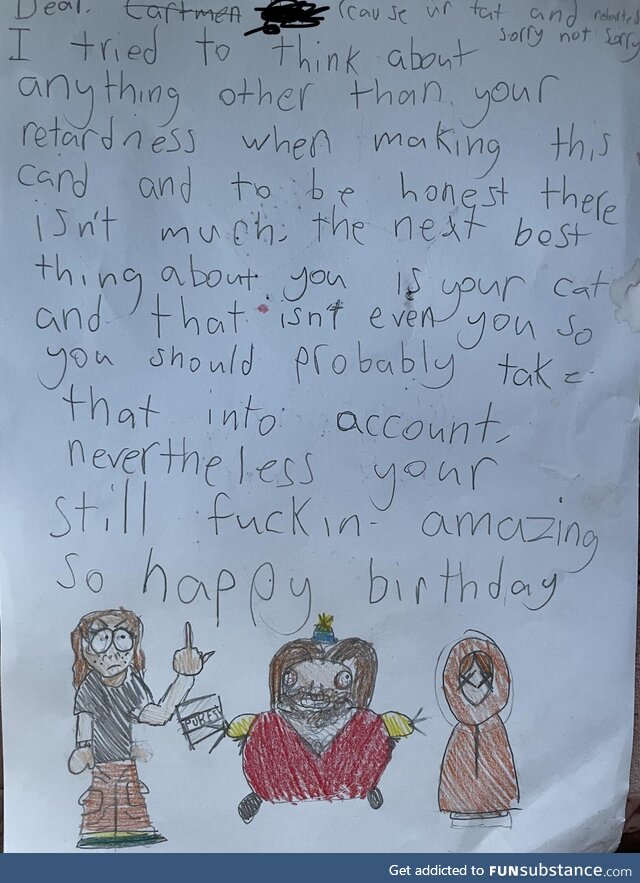 Dear. Cartmen (cause ur fat and
sorry not sorry
I tried to think about
anything other than your
retardness when making this
card and to be honest there
isn't much. the next best
thing about you is your cat
and that isn't even you so
you should probably take
that into account,
nevertheless your
still fuckin amazing
so happy birthday
Get addicted to FUNsubstance.com